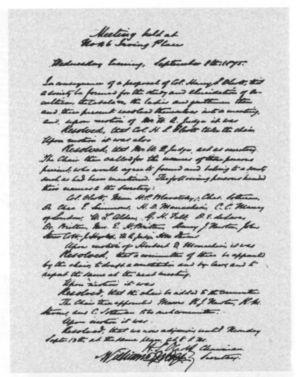 Meeting held at
No 46 Irving Place
Wednesday Evening, September 8th, 1875.
In consequence of a proposal of Col. Henry S. Olcott, that
a Society be formed for the study and elucidation of Oc-
cultism, the Cabala &c, the ladies and gentlemen then
and there present resolved themselves into a meeting,
and, upon motion of Mr W. Q. Judge it was
Resolved, that Col. H. S. Olcott take the chair
Upon motion it was also
Resolved, that Mr W. Q. Judge act as secretary
The Chair then called for the names of the persons
present, who would agree to found and belong to a Society
such as had been mentioned. The following persons handed
their names to the Secretary:
Col. Olcott, Mme. H. P. Blavatsky, Chas. Sotheran,
Dr. Chas. E. Simmons, H. D. Monachesi, C. C. Massey
of London, W. L. Alden, G. H. Felt, D. E. de Lara,
Dr. Britten, Mrs. E. H. Britten, Henry J. Newton, John
Storer Cobb, J. Hyslop, W. Q. Judge, H. M. Stevens
Upon motion of Herbert D. Monachesi it was
Resolved, that a committee of three be appointed
by the chair, to draft a constitution and by laws and to
report the same at the next meeting.
Upon motion it was
Resolved, that the chair be added to the Committee
The Chair then appointed Messrs H. J. Newton, H. M.
Stevens, and C. Sotheran to be such committee.
Upon motion it was
Resolved, that we now adjourn until Monday
Sept. 13th, at the same place, at 8 P.M.
H. S. Olcott Chairman
William Q. Judge Secretary